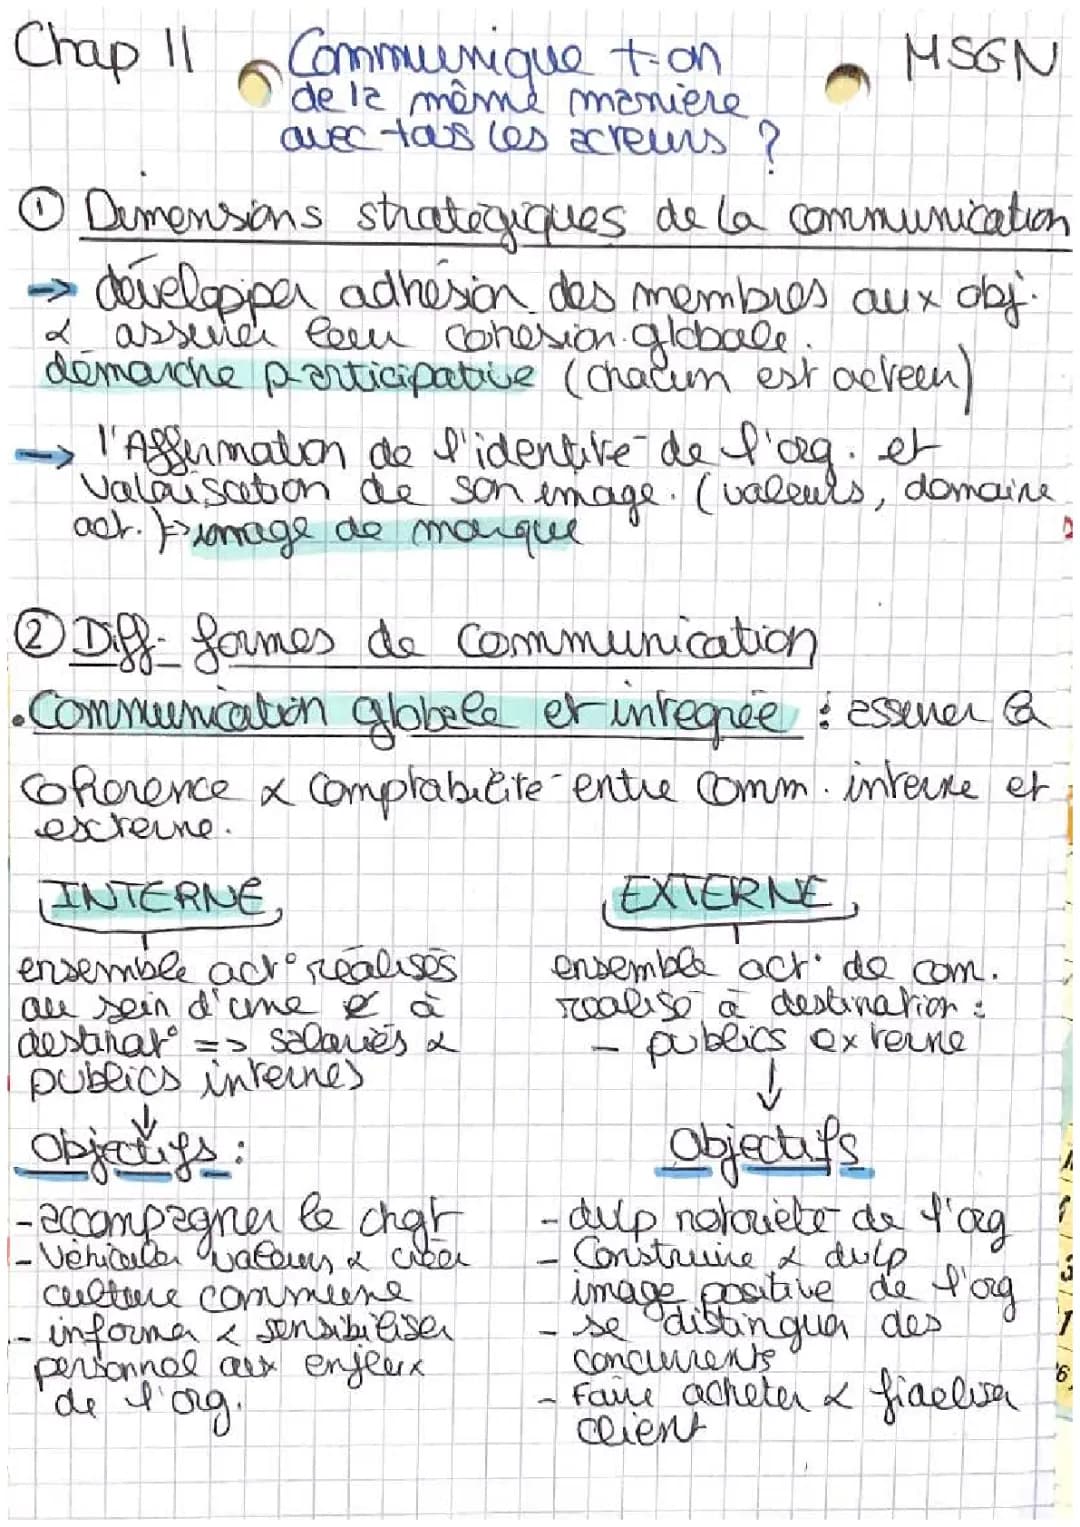 Chap 11
Communique t-on
MSGN
de la même manière
avec tous les acteurs ?
① Dimensions stratégiques de la communication
→ développer adhésion des membres aux obj.
& assurer leur cohésion globale.
démarche participative (chacun est acteur)
→ l'Affirmation de l'identité de l'org. et
valorisation de son image. (valeurs, domaine
act.) → image de marque
② Diff. formes de communication
• Communication globale et intégrée : assurer la
cohérence & comptabilité entre comm. interne et
externe.
INTERNE
ensemble act° réalisés
au sein d'une e à
destinat° => salariés &
publics internes
↓
Objectifs :
- accompagner le chgt
- Véhiculer valeurs & créer
culture commune
- informer & sensibiliser
personnel aux enjeux
de l'org.
EXTERNE
ensemble act. de com.
réalisé à destination :
- publics externe
↓
Objectifs
- dvlp notoriété de l'org
- Construire & dvlp
image positive de l'org
- se distinguer des
concurrents
- Faire acheter & fidéliser
client